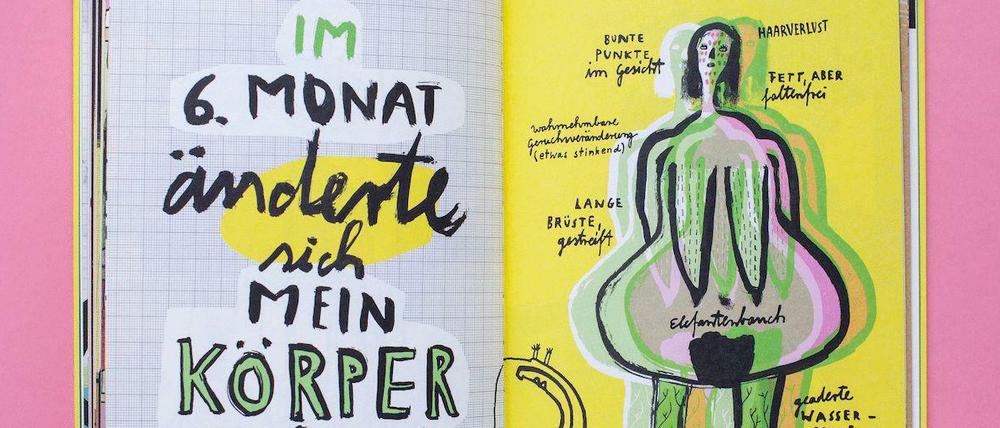 IM
6. MONAT
änderte
sich
MEIN
KÖRPER
BUNTE
PUNKTE
im Gesicht
HAARVERLUST
FETT, ABER
faltenfrei
wahrnehmbare
Geruchsveränderung
(etwas stinkend)
LANGE
BRÜSTE,
gestreift
Elefantenbauch
geaderte
WASSER-